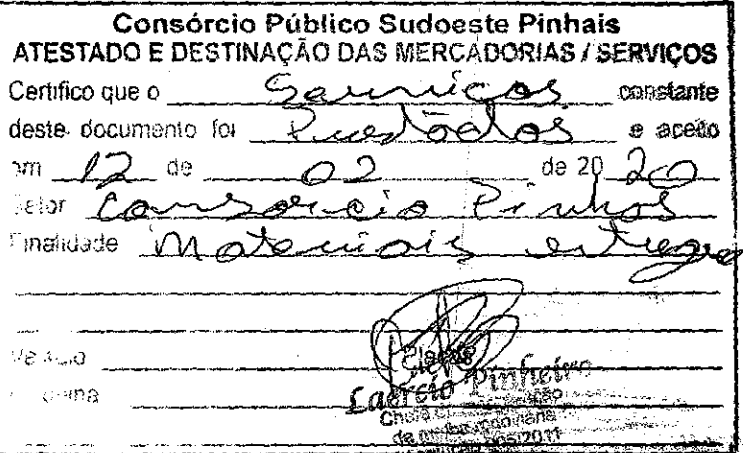 Consórcio Público Sudoeste Pinhais
ATESTADO E DESTINAÇÃO DAS MERCADORIAS / SERVIÇOS
Certifico que o Serviços constante
deste documento foi Prestados e aceito
em 12 de 02 de 20 20
Setor Consorcio Pinhais
Finalidade Materiais entregue
Laércio Pinheiro